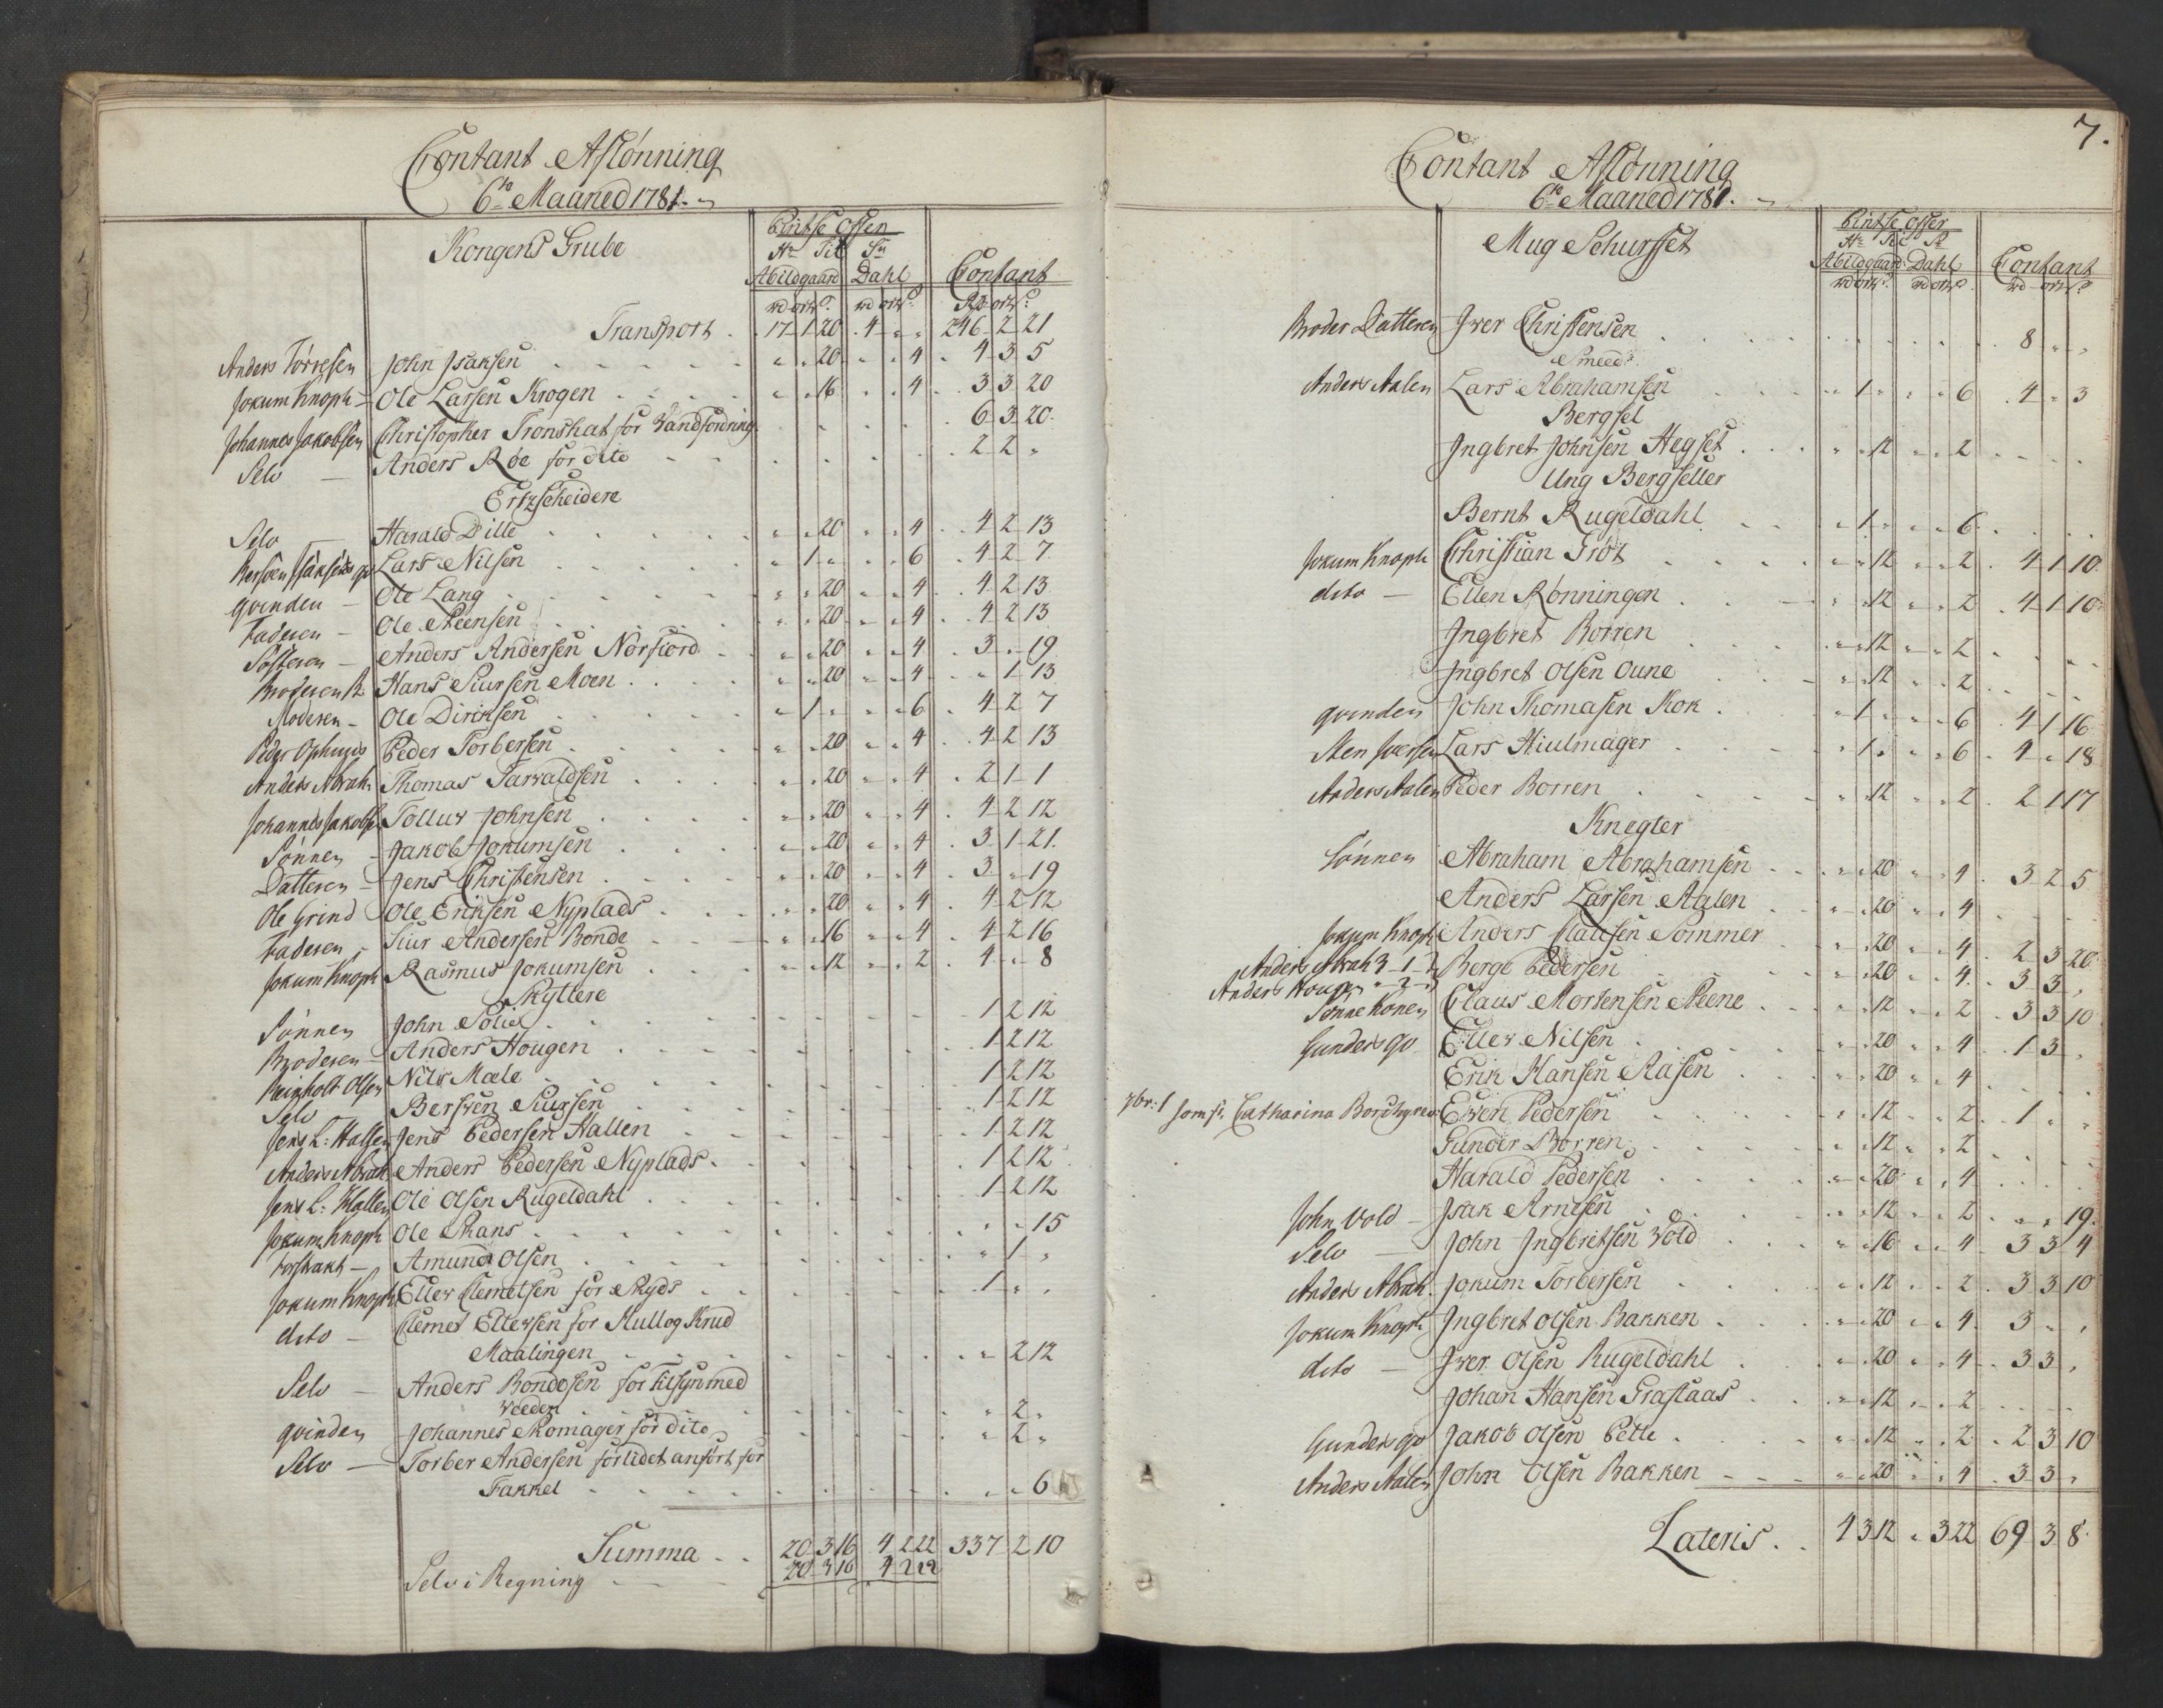 Contant Aflønning
6te Maaned 1781.
Kongens Grube
Pintse Offer
Hr Til Sr
Abildgaard Dahl Contant
rd ort s. rd ort s. Rd ort s.
Transport . 17 1 20 4 " " 246 2 21
Anders Torresen John Isaksen " " 20 " " 4 4 3 5
Jokum Knoph - Ole Larsen Krogen " " 16 " " 4 3 3 20
Johannes Jakobsen Christopher Tronshat for Vandfordring 6 3 20
Selv - Anders Røe for dito 2 2 "
Ertzscheidere
Selv - Harald Dille " " 20 " " 4 4 2 13
Lars Nilsen " 1 " " " 6 4 2 7
qvinden - Ole Lang " " 20 " " 4 4 2 13
Faderen - Ole Steensen " " 20 " " 4 4 2 13
Søsteren - Anders Andersen Norfiord " " 20 " " 4 3 " 19
Hans Siursen Moen " " 20 " " 4 " 1 13
Moderen - Ole Diriksen " 1 " " " 6 4 2 7
Peder Ophuus Peder Torbersen " " 20 " " 4 4 2 13
Anders Abrah: Thomas Tarvaldsen " " 20 " " 4 2 1 1
Johannes Jakobs. Tolluv Johnsen " " 20 " " 4 4 2 12
Sønnen - Jakob Jokumsen " " 20 " " 4 3 1 21
Datteren - Jens Christensen " " 20 " " 4 3 " 19
Ole Grind Ole Eriksen Nyplads " " 20 " " 4 4 2 12
Faderen - Siur Andersen Bonde " " 16 " " 4 4 2 16
Jokum Knoph Rasmus Jokumsen " " 12 " " 2 4 " 8
Skyttere
Sønnen John Solie 1 2 12
Broderen - Anders Hougen 1 2 12
Reinholt Olsen Nils Mæle 1 2 12
Selv Bersven Siursen 1 2 12
Jens L: Hallen Jens Pedersen Hallen 1 2 12
Anders Abrah: Anders Pedersen Nyplads 1 2 12
Jens L: Hallen Ole Olsen Rugeldahl 1 2 12
Jokum Knoph Ole Skans " " 15
Amund Olsen " 1 "
Jokum Knoph Ellev Clemetsen for Skyds 1 " "
dito - Clemet Ellevsen for Kullog Knud
Maalingen " 2 12
Selv - Anders Bondesen for tilsyn med
Veeden " 2 "
qvinden Johannes Skomager for dito " 2 "
Selv - Torber Andersen for lidet anført for
Fakkel " " 6
Summa 20 3 16 4 2 22 337 2 10
Selv i Regning 20 3 16 4 2 22
7.
Contant Aflønning
6te Maaned 1781.
Mug Schursset
Pintse Offer
Hr Til Sr
Abildgaard Dahl Contant
rd ort s. rd ort s. rd ort s.
Broder Datteren Iver Christensen 8 " "
Smeed
Anders Aalen Lars Abrahamsen " 1 " " " 6 4 " 3
Bergsel
Ingbret Johnsen Hegset " " 12 " " 2
Ung Bergseller
Bernt Rugeldahl " 1 " " " 6
Jokum Knoph Christian Grot " " 12 " " 2 4 1 10
dito - Ellen Rønningen " " 12 " " 2 4 1 10
Ingbret Borren " " 12 " " 2
Ingbret Olsen Oune " " 12 " " 2
qvinden John Thomasen Kok " 1 " " " 6 4 1 16
Sten Iversen Lars Hiulmager " 1 " " " 6 4 " 18
Anders Aalen Peder Borren " " 12 " " 2 2 1 17
Knegter
Sønnen Abraham Abrahamsen " " 20 " " 4 3 2 5
Anders Larsen Aalen " " 20 " " 4
Jokum Knoph Anders Clausen Sommer " " 20 " " 4 2 3 20
Anders Abrah 3 - 1 -
Anders Hougen " - 2 - Berge Pedersen " " 20 " " 4 3 3 "
Sønne Konen Claus Mortensen Steene " " 12 " " 2 3 3 10
Gunder go Ellev Nilsen " " 20 " " 4 1 3 "
Erik Hansen Aasen " " 20 " " 4
Jomfr. Catharina Borchgrev. Even Pedersen " " 12 " " 2 1 " "
Gunder Borren " " 12 " " 2
Harald Pedersen " " 20 " " 4
John Vold - Isak Arnesen " " 12 " " 2 " " 19
Selv - John Ingbretsen Vold " " 16 " " 4 3 3 4
Anders Abrah: Jokum Torbersen " " 12 " " 2 3 3 10
Jokum Knoph Ingbret Olsen Bakken " " 20 " " 4 3 " "
dito - Iver Olsen Rugeldahl " " 20 " " 4 3 3 "
Johan Hansen Graslaas " " 12 " " 2
Gunder go Jakob Olsen Pelle " " 12 " " 2 2 3 10
Anders Aalen John Olsen Bakken " " 20 " " 4 3 3 "
Lateris 4 3 12 " 3 22 69 3 8